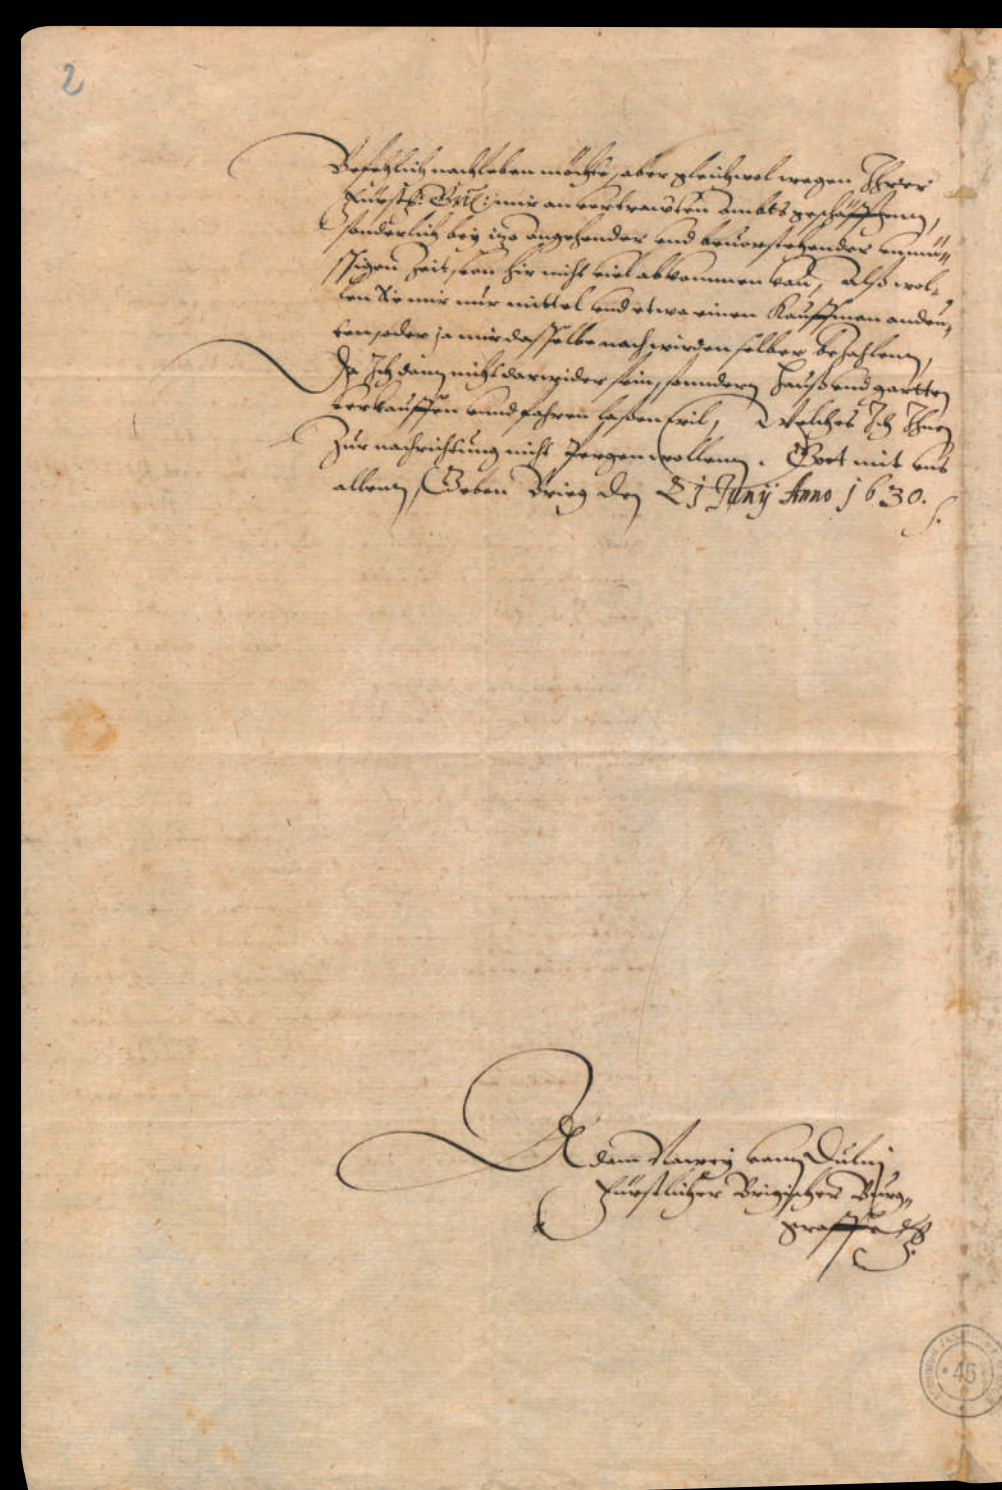 2
Befehlich nachleben möchte, aber gleichwol wegen Ihrer
Fürstl: Gn: mir anvertrawten ambts geschäfften,
sonderlich bey itzo angehender und bevorstehender unmü-
ssigen Zeit, von hir nicht viel abkommen kan, Also wol-
len Sie mir nur mittel und etwa einen Kauffman andeu-
ten, oder ja mir dasselbe nach wirden selber bezahlenn,
Da Ich dann nichts darwider sein, sonndern Hauß und gartten
verkauffen unnd fahren laßen wil, Welches Ich Ihnen
Zur nachrichtung nicht pergen wollenn. Gott mit uns
allenn, Geben Brieg den 21 Junÿ Anno 1630.
Adam vonn
Fürstlicher Brigischer Burg-
graffe
46